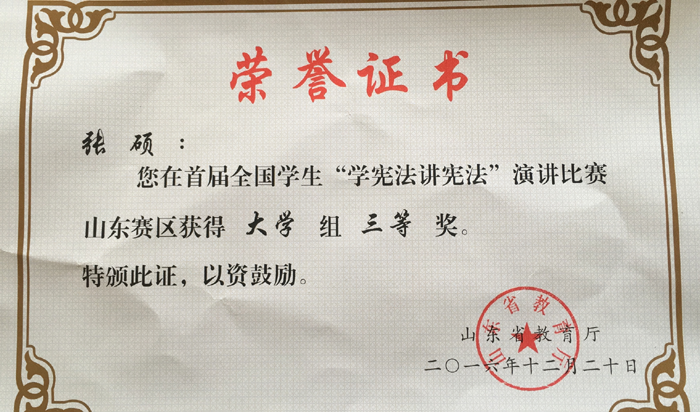 荣誉证书
张硕：
您在首届全国学生“学宪法讲宪法”演讲比赛
山东赛区获得 大学 组 三等 奖。
特颁此证，以资鼓励。
山东省教育厅
山东省教育厅
二〇一六年十二月二十日